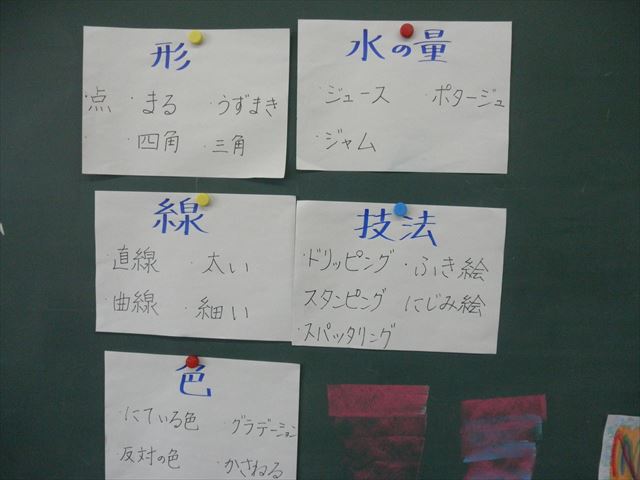 形
・点 ・まる ・うずまき
・四角 ・三角
水の量
・ジュース ・ポタージュ
・ジャム
線
・直線 ・太い
・曲線 ・細い
技法
・ドリッピング ・ふき絵
・スタンピング ・にじみ絵
・スパッタリング
色
・にている色 ・グラデーション
・反対の色 ・かさねる